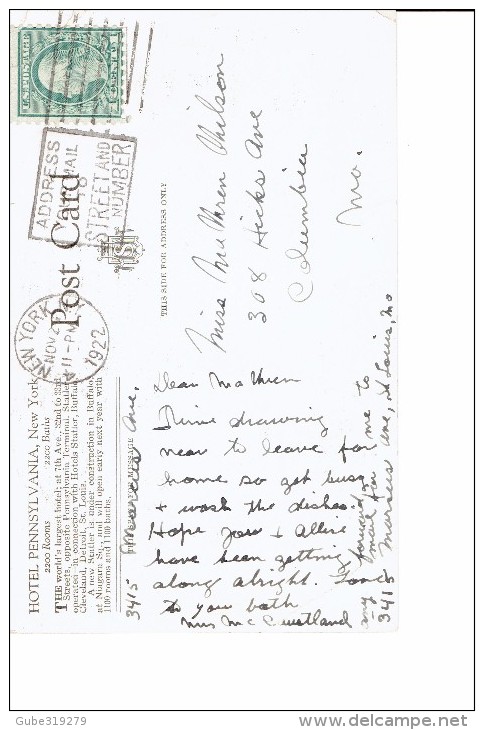 U.S. POSTAGE
ADDRESS
MAIL
TO
STREET AND
NUMBER
NEW YORK
NOV 2
11-PM
1922
Post Card
THIS SIDE FOR ADDRESS ONLY
Miss Wilson
308 Hicks Ave
Columbia
Mo.
HOTEL PENNSYLVANIA, New York
2200 Rooms 2200 Baths
THE world's largest hotel; at 7th Ave., 32nd to 33rd
Streets, opposite Pennsylvania Terminal. Statler
operated—in connection with Hotels Statler, Buffalo
Cleveland, Detroit, St. Louis.
A new Statler is under construction in Buffalo
at Niagara Sq., and will open early next year with
1100 rooms and 1100 baths.
FOR MESSAGE
Dear
Time drawing
near to leave for
home so get busy
& wash the dishes.
Hope you & Allie
have been getting
along alright. Love
to you both
Mrs
3415 Ave.
forward
my mail for me to
3415 Ave, St Louis, Mo
Gube319279
www.delcampe.net